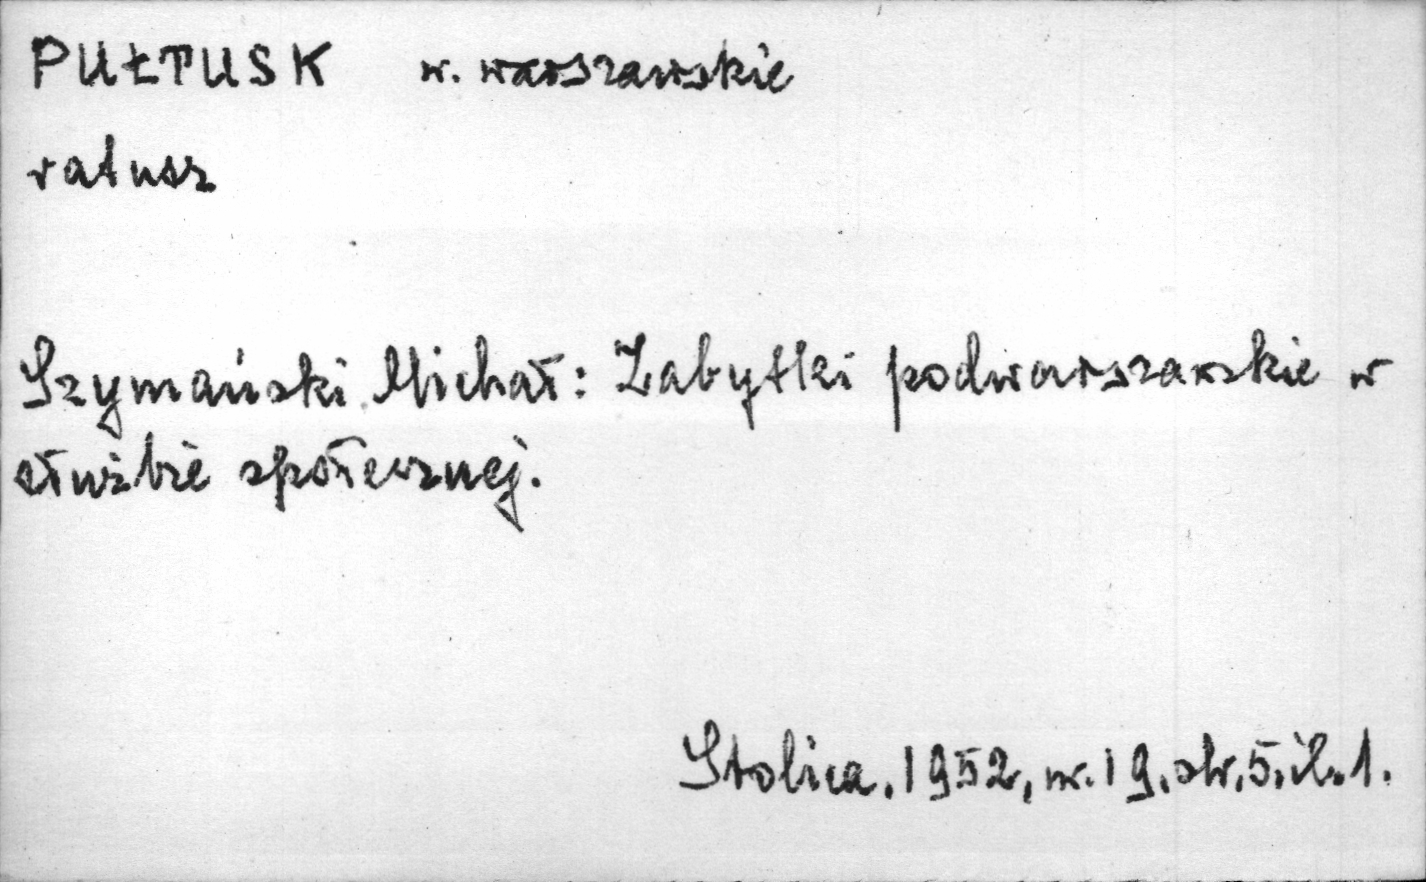 PUŁTUSK w. warszawskie
ratusz
Szymański Michał: Zabytki podwarszawskie w
służbie społecznej.
Stolica, 1952, nr. 19, str. 5, il. 1.